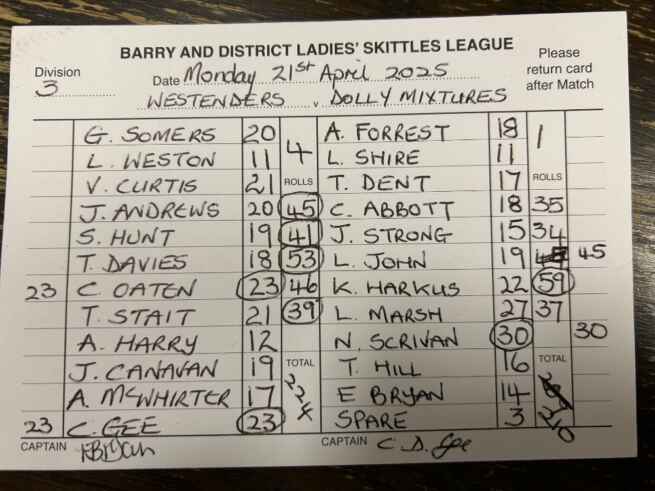 BARRY AND DISTRICT LADIES' SKITTLES LEAGUE
Division 3
Date Monday 21st April 2025
Please return card after Match
WESTENDERS v. DOLLY MIXTURES
G. SOMERS 20 4 A. FORREST 18 1
L. WESTON 11 L. SHIRE 11
V. CURTIS 21 ROLLS T. DENT 17 ROLLS
J. ANDREWS 20 45 C. ABBOTT 18 35
S. HUNT 19 41 J. STRONG 15 34
T. DAVIES 18 53 L. JOHN 19 45
23 C. OATEN 23 46 K. HARKUS 22 59
T. STAIT 21 39 L. MARSH 27 37
A. HARRY 12 N. SCRIVAN 30 30
J. CANAVAN 19 TOTAL T. HILL 16 TOTAL
A. MCWHIRTER 17 224 E BRYAN 14
23 C. GEE 23 SPARE 3 210
CAPTAIN CAPTAIN C. D. Gee